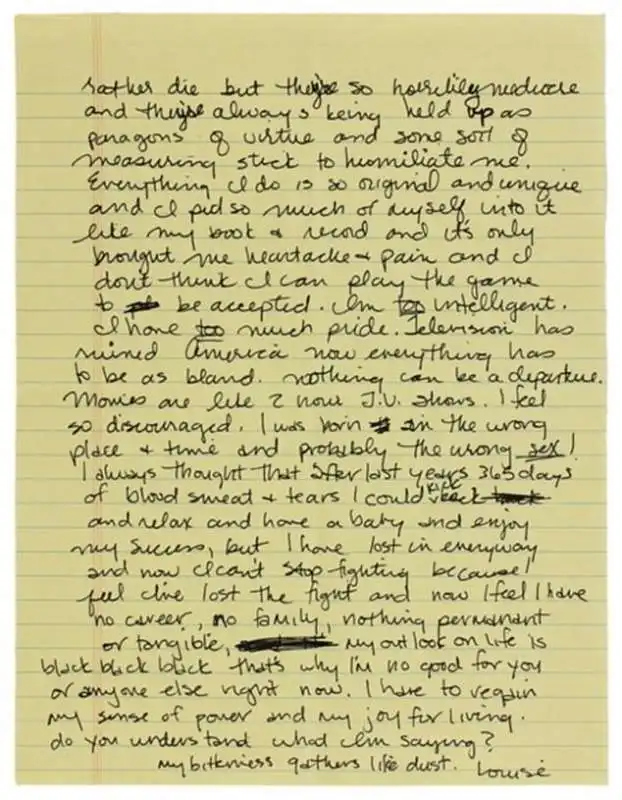 rather die but they're so horribly mediocre
and they're always being held up as
paragons of virtue and some sort of
measuring stick to humiliate me.
Everything I do is so original and unique
and I put so much of myself into it
like my book & record and it's only
brought me heartache & pain and I
don't think I can play the game
to be accepted. I'm too intelligent.
I have too much pride. Television has
ruined America now everything has
to be as bland. nothing can be a departure.
Movies are like 2 hour T.V. shows. I feel
so discouraged. I was born in the wrong
place & time and probably the wrong sex!
I always thought that after last years 365 days
of blood sweat & tears I could
and relax and have a baby and enjoy
my success, but I have lost in everyway
and now I can't stop fighting because I
feel I've lost the fight and now I feel I have
no career, no family, nothing permanant
or tangible, my outlook on life is
black black black that's why I'm no good for you
or anyone else right now. I have to regain
my sense of power and my joy for living.
do you understand what I'm saying?
my bitterness gathers like dust. Louise